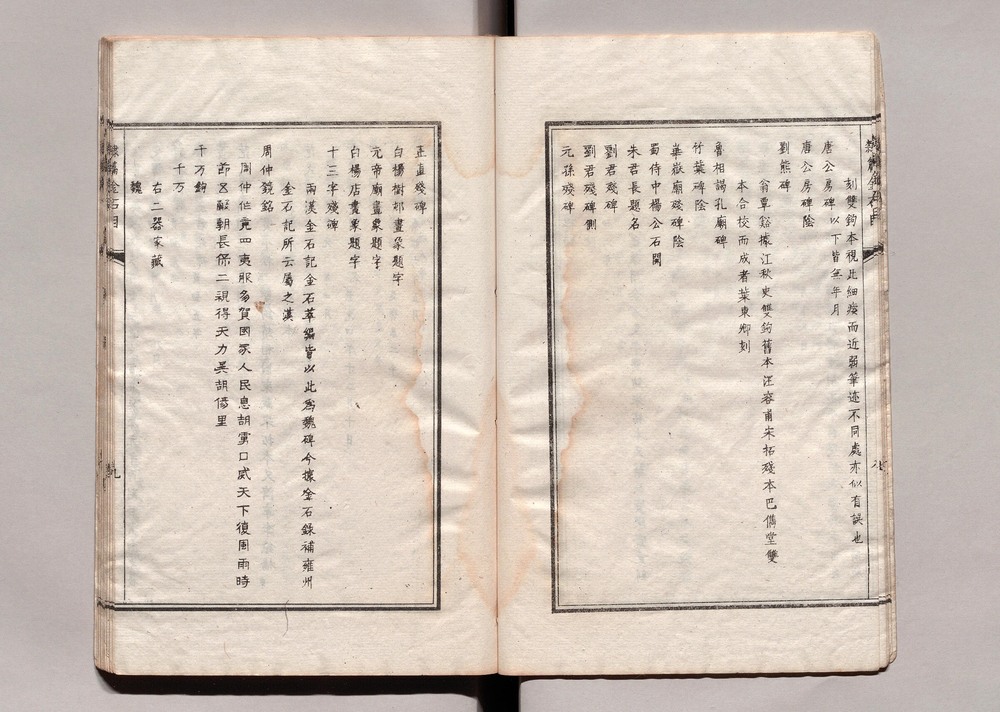 刻雙鉤本視此細瘦而近弱筆迹不同處亦似有誤也
唐公房碑以下皆無年月
唐公房碑陰
劉熊碑
翁覃谿據江秋史雙鉤舊本汪容甫宋拓殘本巴儁堂雙
本合校而成者葉東卿刻
魯相謁孔廟碑
竹葉碑陰
華嶽廟殘碑陰
蜀侍中楊公石闕
朱君長題名
劉君殘碑
劉君殘碑側
元孫殘碑
正直殘碑
白楊樹邨畫象題字
元帝廟畫象題字
白楊店畫象題字
十三字殘碑
兩漢金石記金石萃編皆以此為魏碑今據金石錄補雍州
金石記所云屬之漢
周仲鏡銘
周仲作竟四夷服多賀國家人民息胡虜口威天下復風雨時
節五穀朝長保二親得天力吳胡傷里
千万鉤
千万
右二器家藏
魏
九